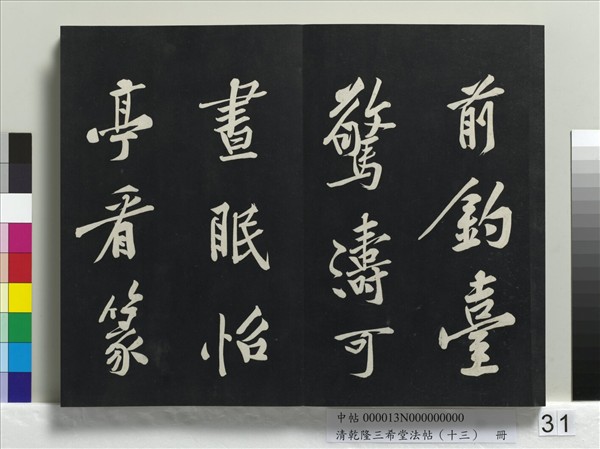 前釣臺
驚濤可
晝眠怡
亭看篆
中帖 000013N000000000
清乾隆三希堂法帖（十三） 冊
31